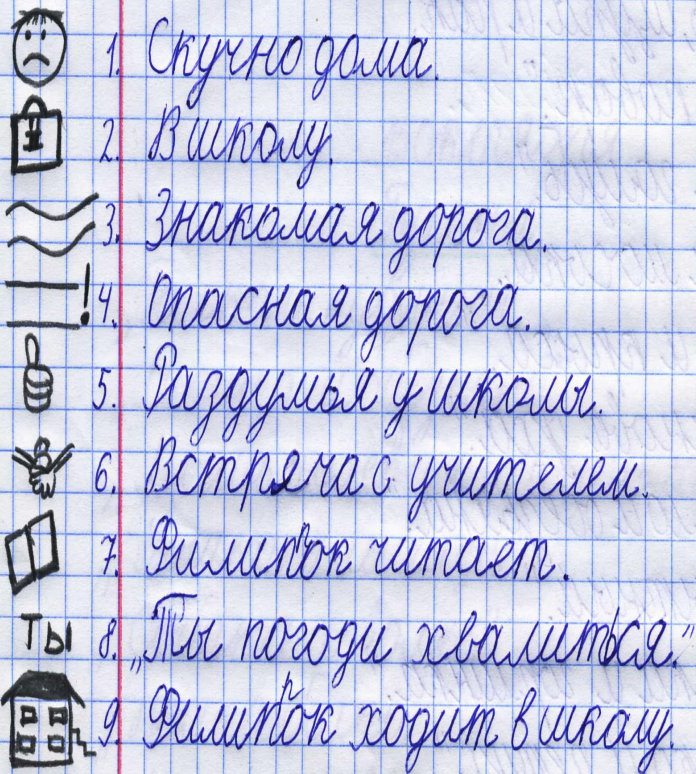 1. Скучно дома.
2. В школу.
3. Знакомая дорога.
! 4. Опасная дорога.
5. Раздумья у школы.
6. Встряча с учителем.
7. Филиппок читает.
ТЫ 8. „Ты погоди хвалиться.”
9. Филиппок ходит в школу.